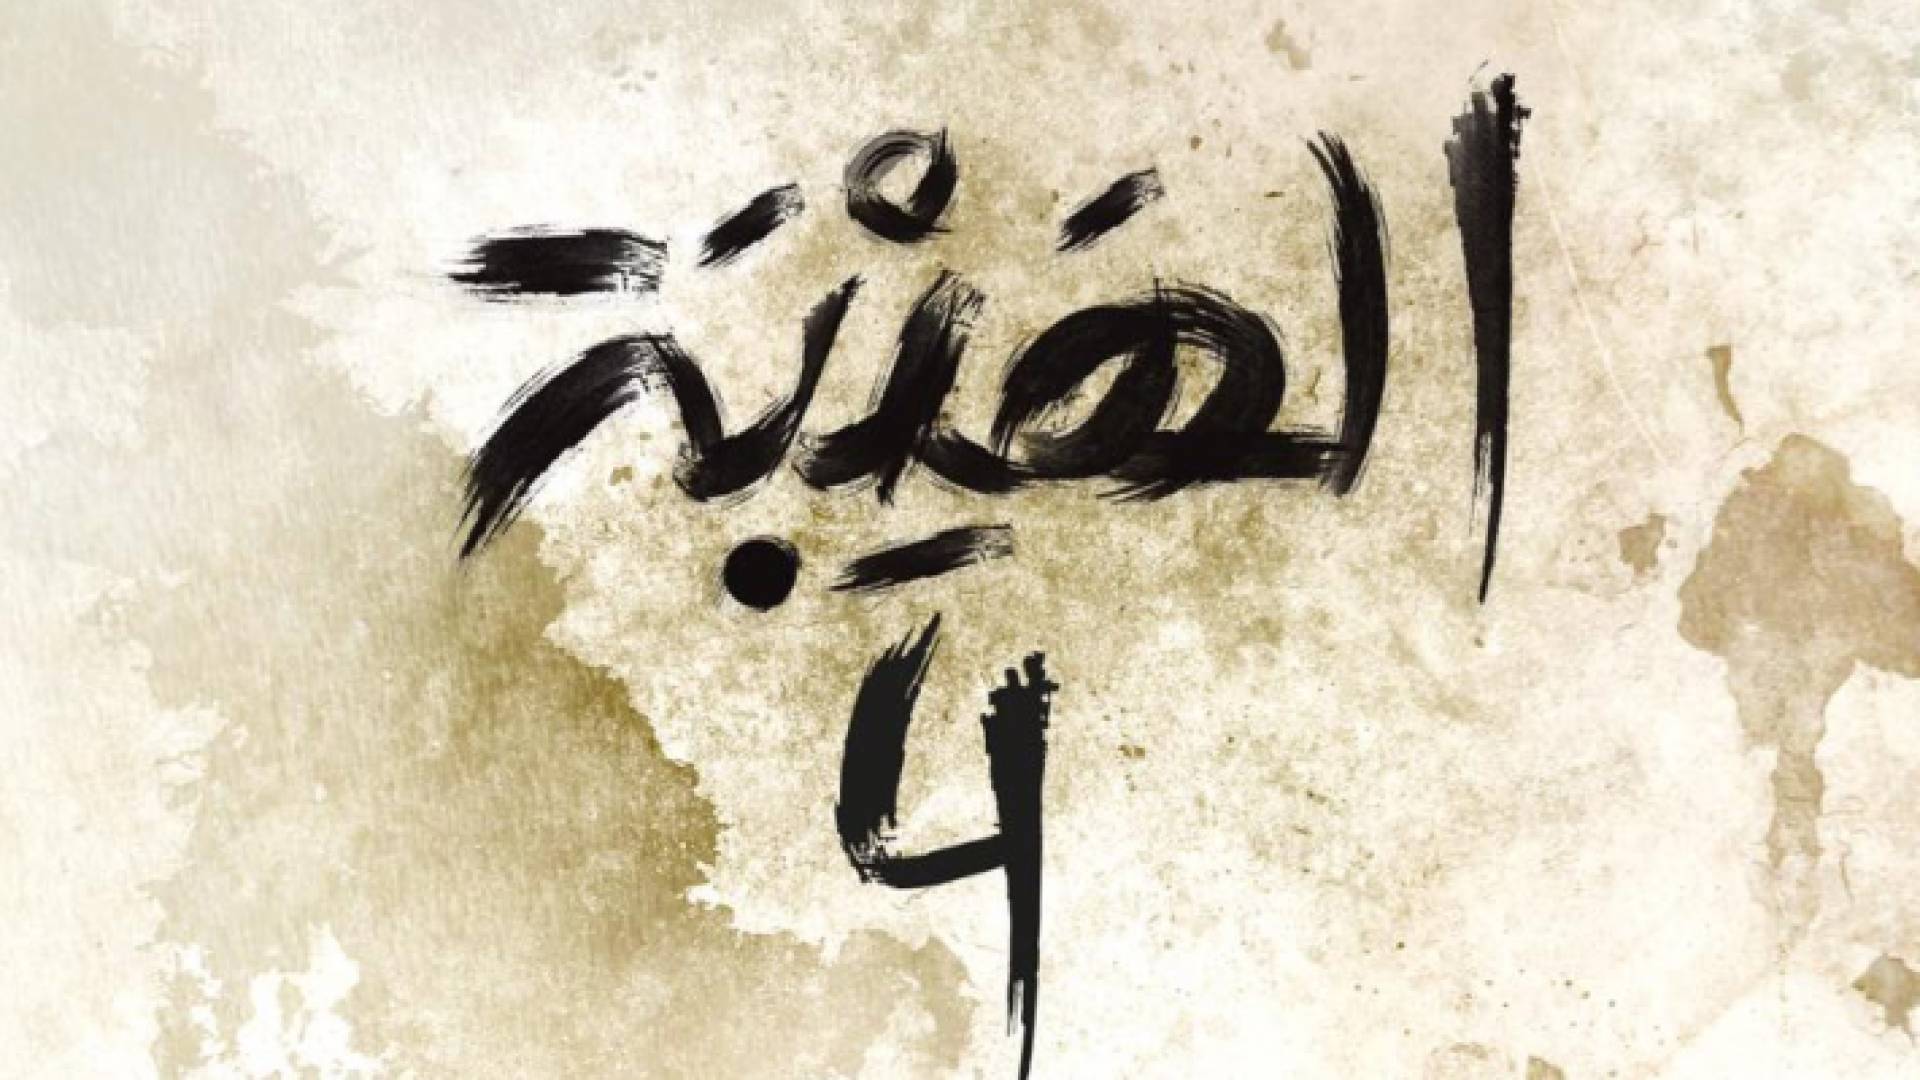 الهَيْبَة
4